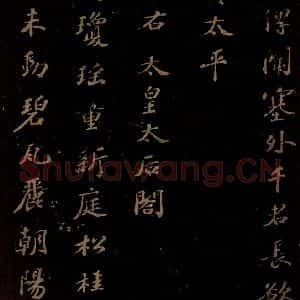 聞塞外千君長欲
太平
右太皇太后閣
瓊瑤重 庭松桂
未動碧瓦麗朝陽
Shufawang.CN